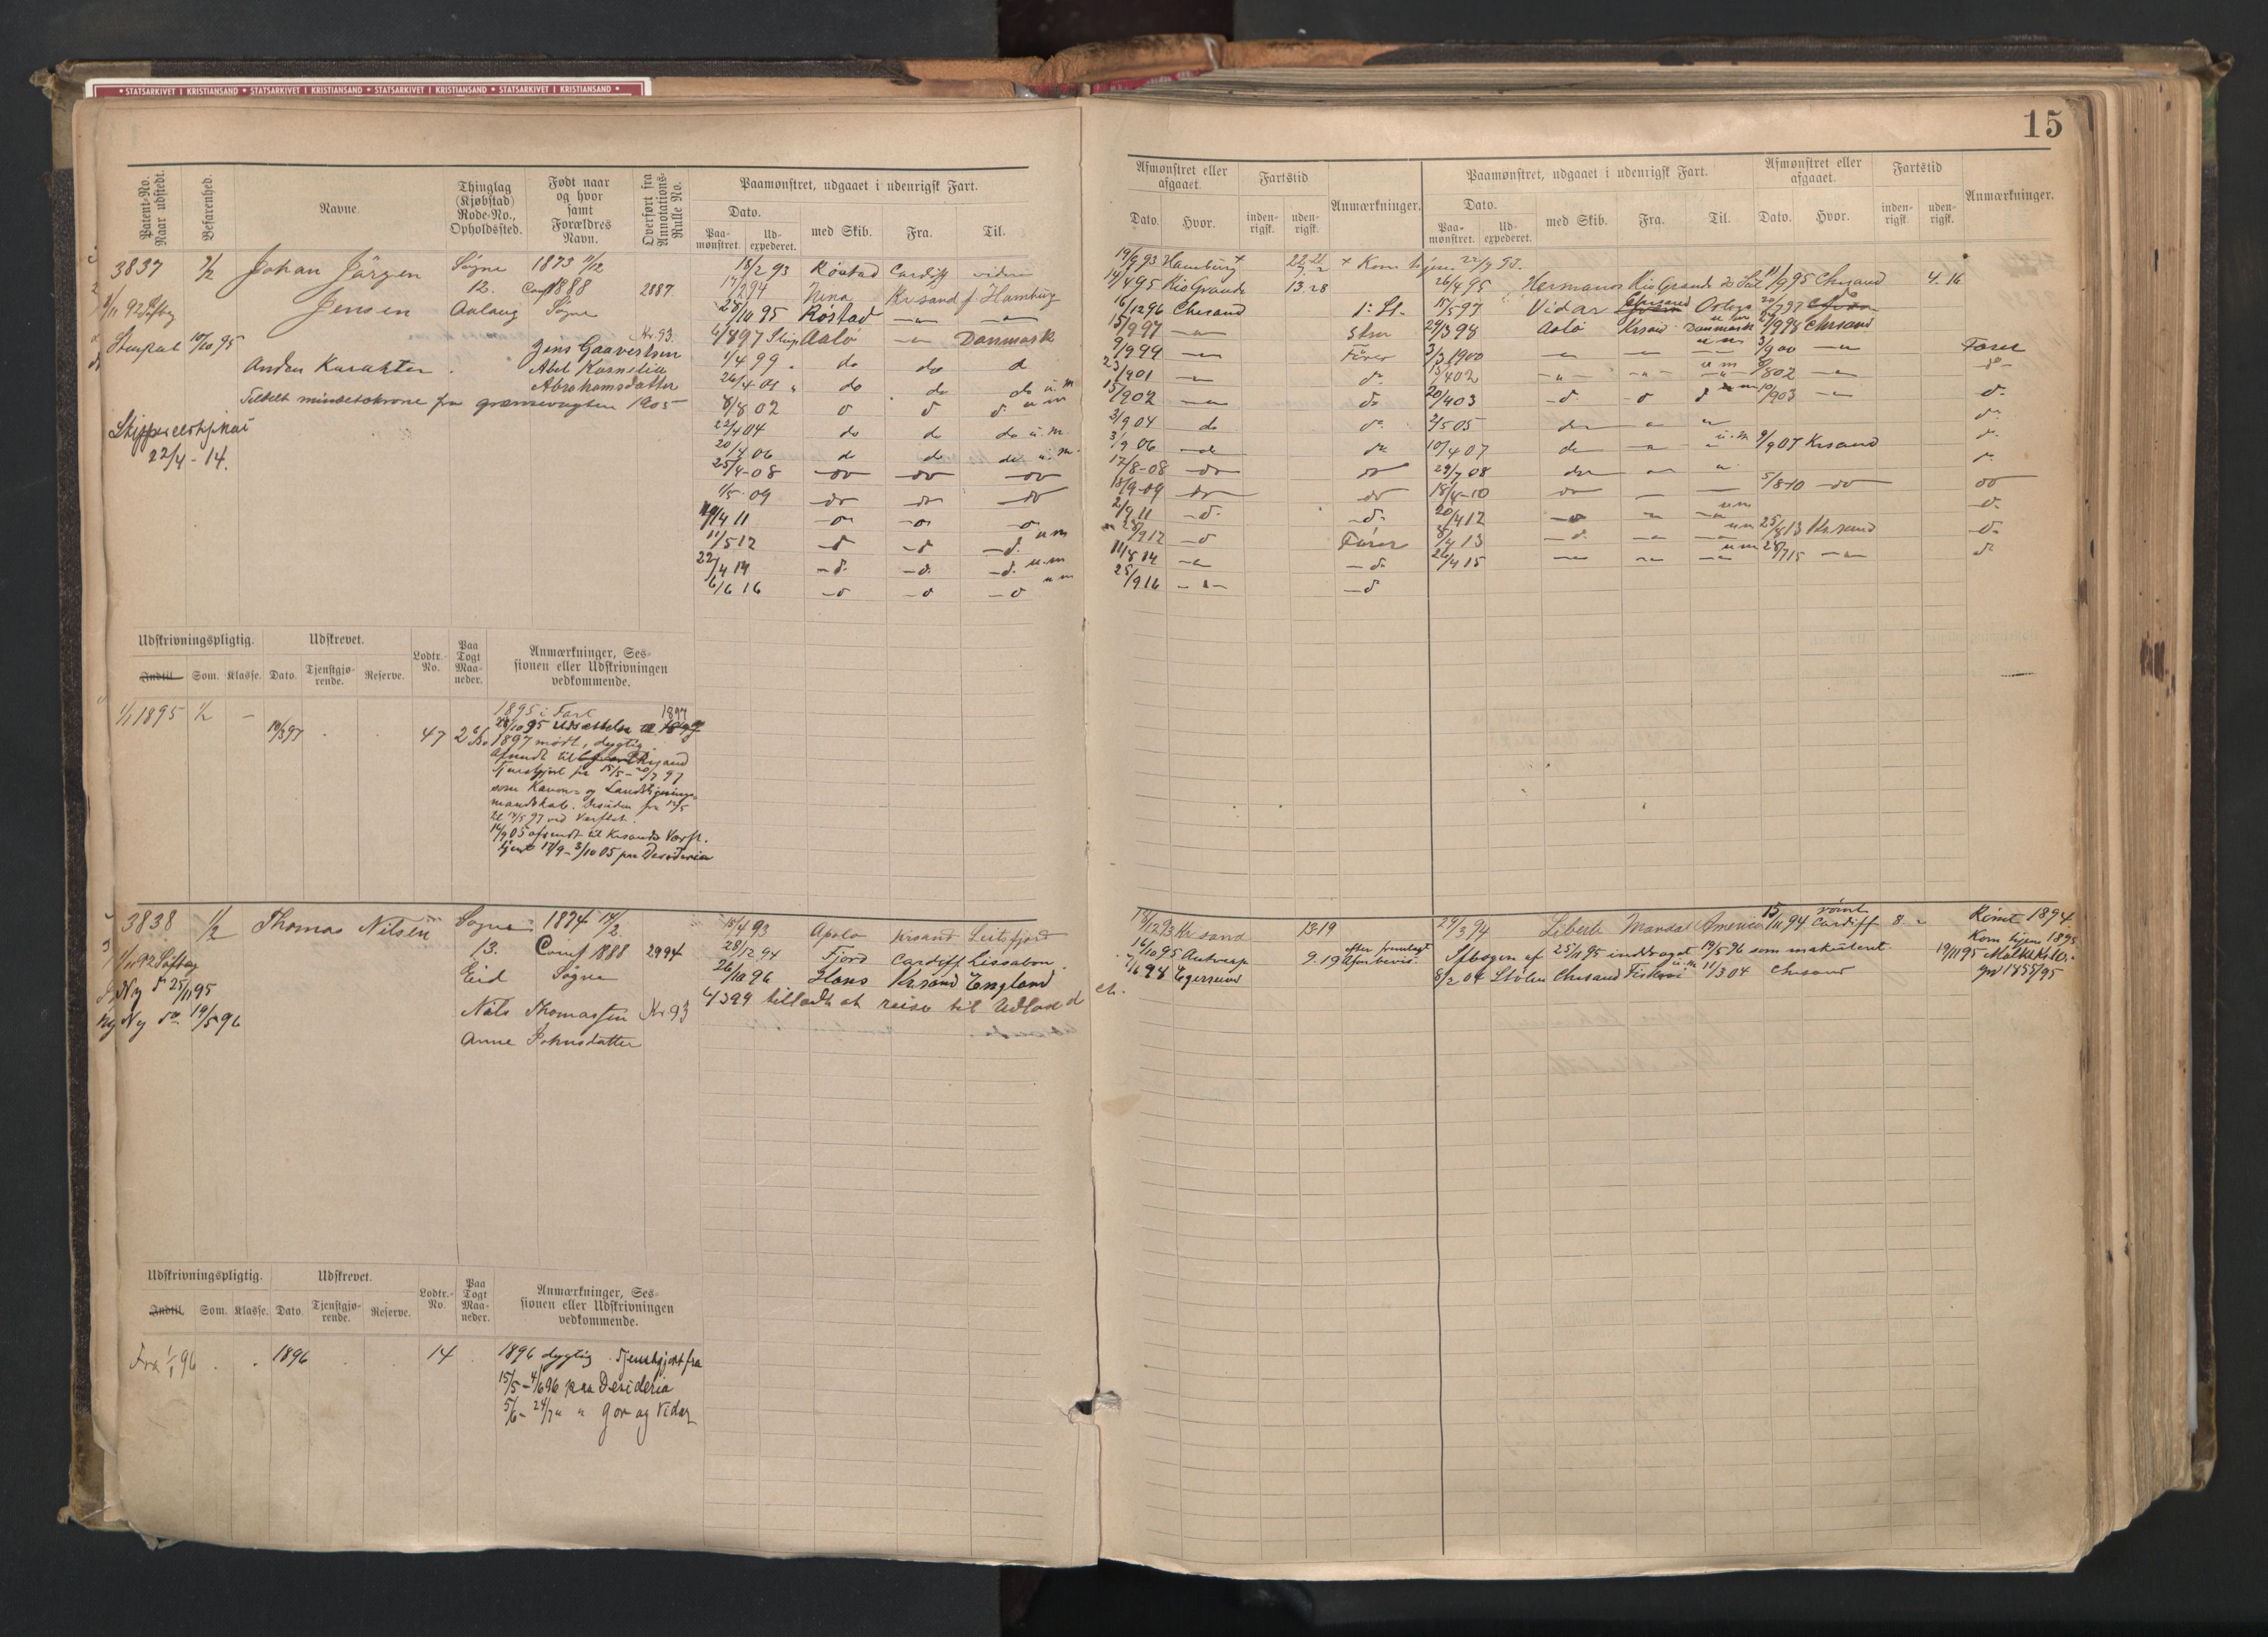 • STATSARKIVET I KRISTIANSAND • STATSARKIVET I KRISTIANSAND • STATSARKIVET I KRISTIANSAND • STATSARKIVET I KRISTIANSAND •
15
Patent-No. Naar udstedt.
Befarenhed.
Navne.
Thinglag (Kjøbstad) Rode-No., Opholdssted.
Født naar og hvor samt Forældres Navn.
Overført fra Annotations-Rulle No.
Paamønstret, udgaaet i udenrigsk Fart.
Dato.
Paamønstret. Udexpederet. med Skib. Fra. Til.
Afmønstret eller afgaaet. Fartstid Anmærkninger. Paamønstret, udgaaet i udenrigsk Fart. Afmønstret eller afgaaet. Fartstid Anmærkninger.
Dato. Hvor. indenrigsk. udenrigsk. Dato. Paamønstret. Udexpederet. med Skib. Fra. Til. Dato. Hvor. indenrigsk. udenrigsk.
3837 Johan Jörgen Søgne 1873 11/12
Jensen 12. Conf 1888 2887.
Aalaug Søgne
10/10 95 Kr. 93.
Jens Gaavertsen
Anden Karakter. Abel Kornelia
Abrahamsdatter
Tildelt mindetskrone fra grænsevagten 1905
22/4 - 14.
18/2 93 Röstad Cardiff videre
Nina Krsand f. Hamburg
28/10 95 Röstad — " — — " —
4/8 97 Aalö — " — Danmark
1/4 99 do do d
26/4 01 " do do do u.m
8/8 02 d d d. u m
22/4 04 do do do u.m.
20/4 06 do do do u.m.
25/4 - 08 — do — do — do
1/5 - 09 — do — do — do
11 4 11 — d — d — d
11/5 12 — d — d — d. u m
22/4 14 — d. — d. — d. u m
6/6 16 — d — d — d u m
19/9 93 Hamburg + 22/9 93.
14/4 95 Rio Grande 13. 28 26/4 95 Hermanos Rio Grande do Sul 11/9 95 Chrsand 4. 16
16/12 96 Chrsand 1: St. 15/5 97 Vidar Chrsand
15/9 97 — " — Stm 29/3 98 Aalö Krsand Danmark u m 2/9 98 Chrsand
9/9 99 — " — Fører 3/3 1900 — " — — " — u m 3/9 00 — " — Fører
23/9 01 — " — do 13/4 02 — " — — " — u m 8/8 02 — " — do
15/9 02 — " — do 20/4 03 — d — d d u m 10/9 03 — " — do
3/9 04 do do 2/5 05 do " " do
3/9 06 — do do 10/4 07 do — " — " u.m 9/9 07 Krsand do
17/8 - 08 — do do 29/7 08 do " " do
18/9 - 09 — do do 18/4 - 10 do — — 5/8 10 — do do
2/9 11 — d. — d. 20/4 12 — d — " — " u m — d.
28/9 12 — d Fører 8/4 13 — d. — " — — " — u m 25/8 13 Krsand — d.
11/8 14 — " — — d. 26/4 15 — " — — " — — " — u m 28/7 15 — " — d.
25/9 16 — " — — d
Udskrivningspligtig. Udskrevet. Lodtr.-No. Paa Togt Maaneder. Anmærkninger, Sessionen eller Udskrivningen vedkommende.
Indtil. Som. Klasse. Dato. Tjenstgjørende. Reserve.
1/1 1895 1/2 — 19/3 97 . . 47
1895 i Fart 1897
28/10 95 Udsættelse til
1897 mødt, dygtig.
Afsendt til Krsand
Tjenstgjort fra 15/5 - 20/7 97
som Kanon- og Landstignings-
mandskab. Desuden fra 12/5
til 14/5 97 ved Værftet.
14/9 05 afsendt til Krsands Værft.
tjent 17/9 - 3/10 05 paa Desideria
3838 1/2 Thomas Nilsen Søgne 1874 14/2.
13. Conf 1888 2994
Eid Søgne
Ny do 25/11 95
Ny do 19/5 96
Nils Thomassen Kr. 93
Anne Johnsdatter
15/4 93 Apolo Krsand
28/12 94 Fjord Cardiff Lissabon.
26/10 96 Hans Krsand England
4/3 99 tilladt at reise til Udland et.
18/12 93 Krsand 13.19 29/3 94 Liberté Mandal America 15/11 94 rømt Cardiff 8. " Rømt 1894.
16/10 95 Antwerp 9. 19 efter fremlagt Afm bevis. Sfbogen af 25/11 95 inddraget 19/5 96 som makuleret. Kom hjem 1895
7/6 98 Egersund 8/2 04 Chrsand Fiskeri u.m 11/3 04 Chrsand
Udskrivningspligtig. Udskrevet. Lodtr.-No. Paa Togt Maaneder. Anmærkninger, Sessionen eller Udskrivningen vedkommende.
Indtil. Som. Klasse. Dato. Tjenstgjørende. Reserve.
Fra 1/1 96 . . 1896 . . 14 .
1896 dygtig. Tjenstgjort fra
15/5 - 4/6 96 paa Desideria
5/6 - 24/7 " " Gor og Vidar